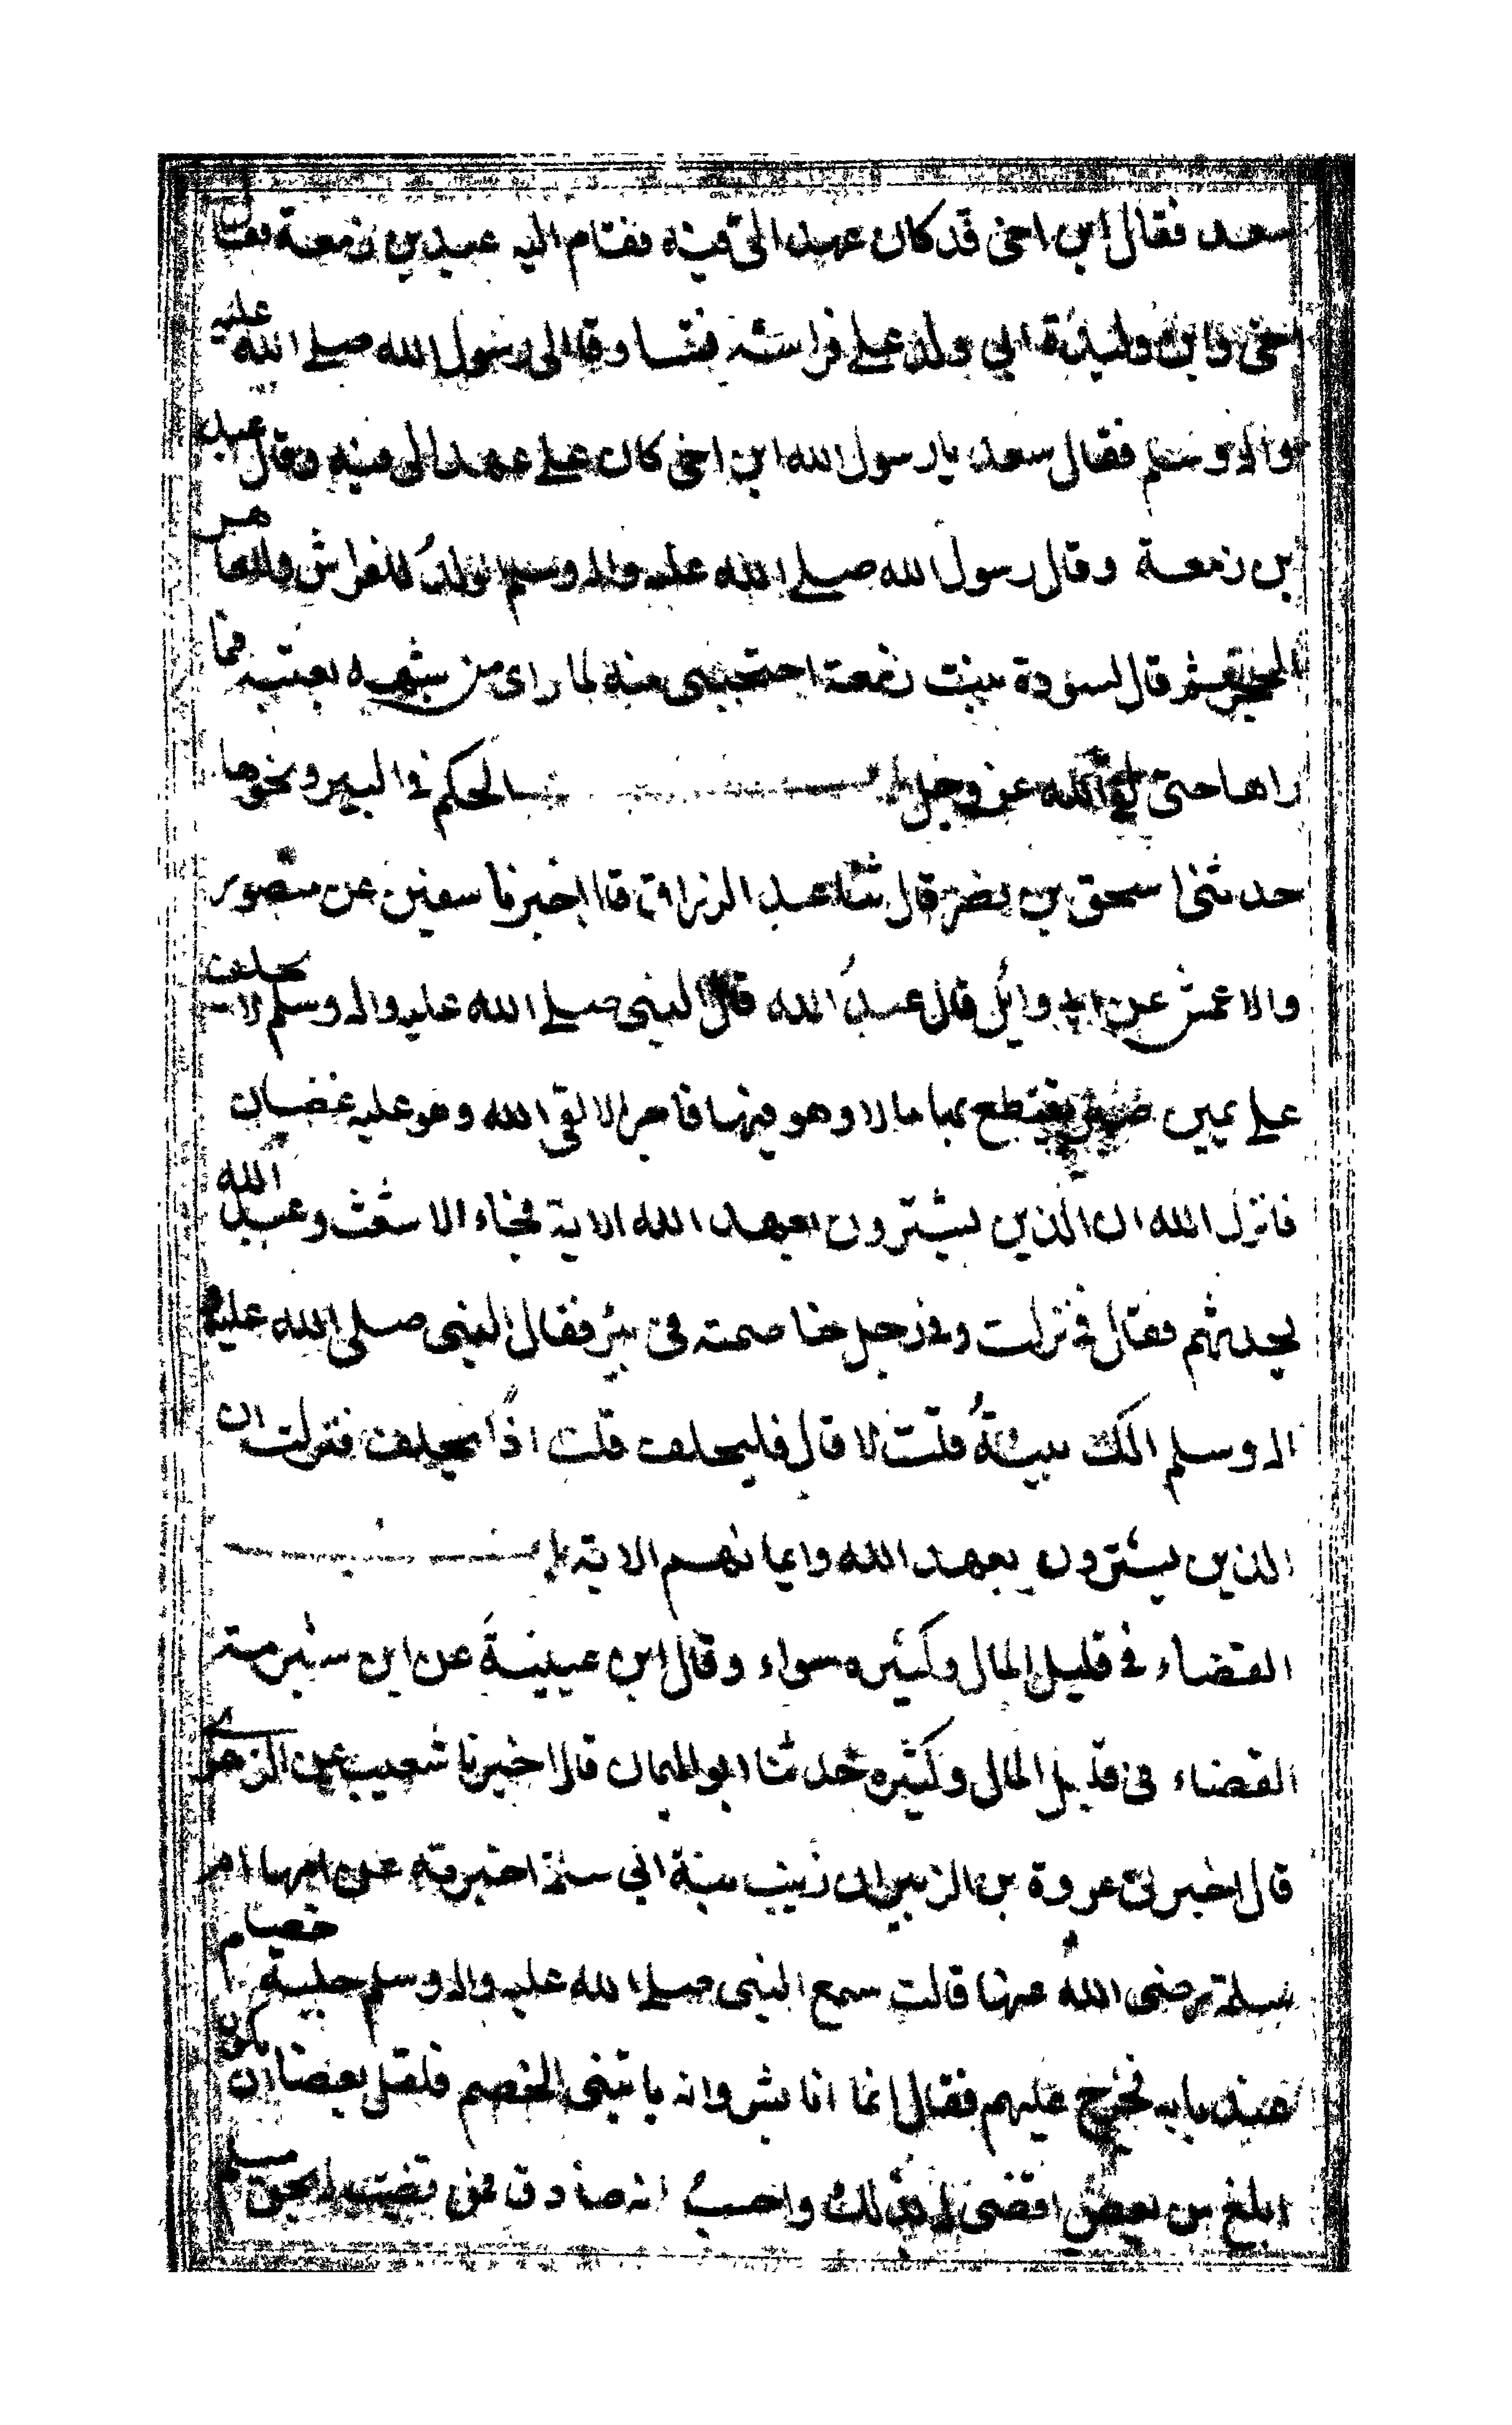 سعد فقال ابن اخى قد كان عهد الىّ فيه فقام اليه عبد بن زمعة فقال
اخى وابن وليدة ابي ولد على فراشه فتساوقا الى رسول الله صلى الله عليه
واله وسلم فقال سعد يا رسول الله ابن اخى كان على عهد الى فيه وقال عبد
بن زمعة وقال رسول الله صلى الله عليه واله وسلم الولدُ للفراش وللعاهر
الحجر ثم قال لسودة بنت زمعة احتجبى منه لما راى من شبهه بعتبه فما
راها حتى لقى الله عز وجل باب الحكم فى البير ونحوها
حدثنا اسحق بن نصر قال ثنا عبد الرزاق قال اخبرنا سفين عن منصور
والاعمش عن ابى وائل قال عبدُ الله قال النبى صلى الله عليه واله وسلم لا يحلف
على يمين صبر يقتطع بها مالا وهو فيها فاجر الا لقى الله وهو عليه غضبان
فانزل الله ان الذين يشترون بعهد الله الاية فجاء الاشعث وعبد الله
يحدثهم فقال فى نزلت وفى رجل خاصمته فى بئر فقال النبى صلى الله عليه و
اله وسلم الك بينةُ قلت لا قال فليحلف قلت اذًا يحلف فنزلت ان
الذين يشترون بعهد الله وايمانهم الاية باب
القضاء فى قليل المال وكثيره سواء وقال ابن عيينة عن ابن شبرمة
القضاء فى قليل المال وكثيره حدثنا ابو اليمان قال اخبرنا شعيب عن الزهرى
قال اخبرنى عروة بن الزبير ان زينب بنة ابي سلمة اخبرته عن امها ام
سلمة رضى الله عنها قالت سمع النبى صلى الله عليه واله وسلم جلبة خصام
عند بابه فخرج عليهم فقال انما انا بشر وانه ياتينى الخصم فلعل بعضا ان يكون
ابلغ من بعض اقضى له بذلك واحسبُ انه صادق فمن قضيت له بحق مسلم